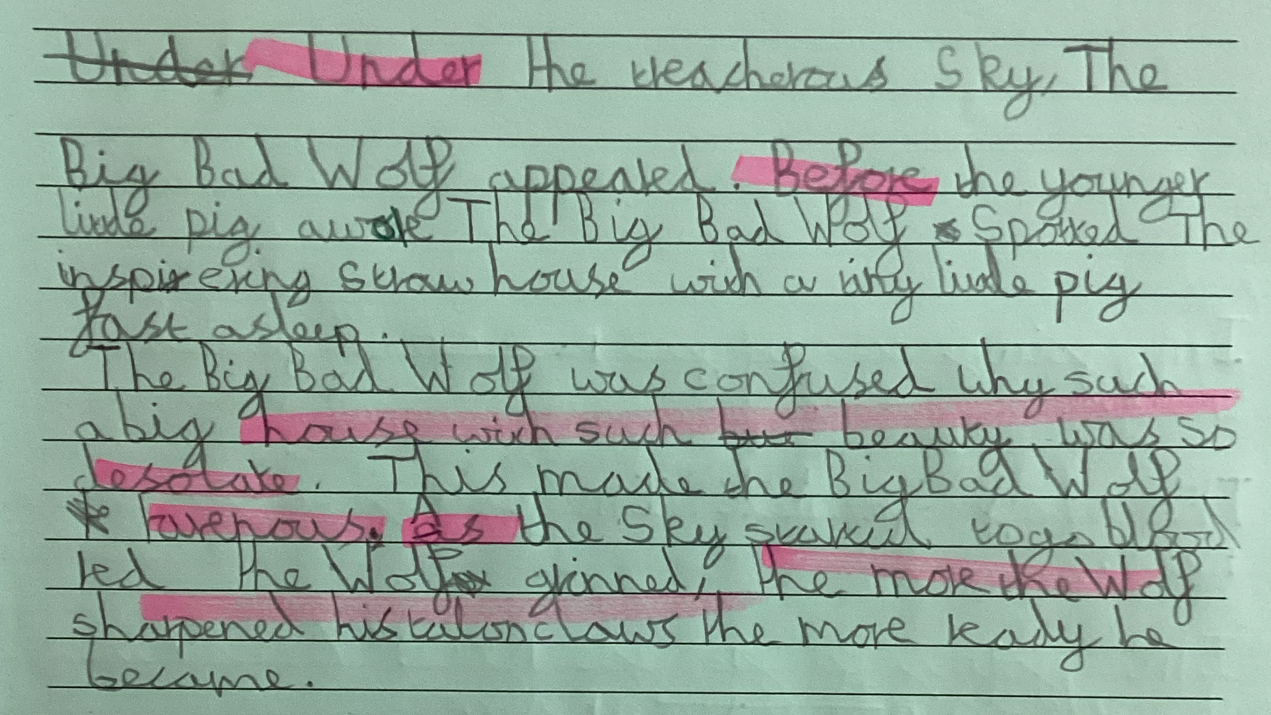 Under Under the treacherous Sky, The
Big Bad Wolf appeared. Before the younger
little pig awoke The Big Bad Wolf Spotted The
inspirering straw house with a tiny little pig
fast asleep.
The Big Bad Wolf was confused why such
a big house with such beauty was so
desolate. This made the Big Bad Wolf
ravenous. As the Sky started to go blood
red the Wolf grinned, the more the Wolf
sharpened his talon claws the more ready he
became.